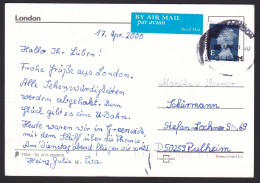 London
BY AIR MAIL
par avion
Royal Mail
17. Apr. 2000
Hallo Ihr Lieben!
Frohe Grüße aus London.
Alle Sehenswürdigkeiten
werden abgehakt. Zum
Glück gibt es eine U-Bahn.
Heute waren wir in Greenwich,
mit dem Schiff über die Themse.
Am Dienstag abend fliegen wir
Heinz, Julia u. Eva
Schürmann
Stefan-Lochner-Str. 69
D 50259 Pulheim